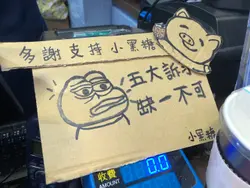 多謝支持小黑糖
五大訴求
缺一不可
小黑糖
收費
AMOUNT
0.0